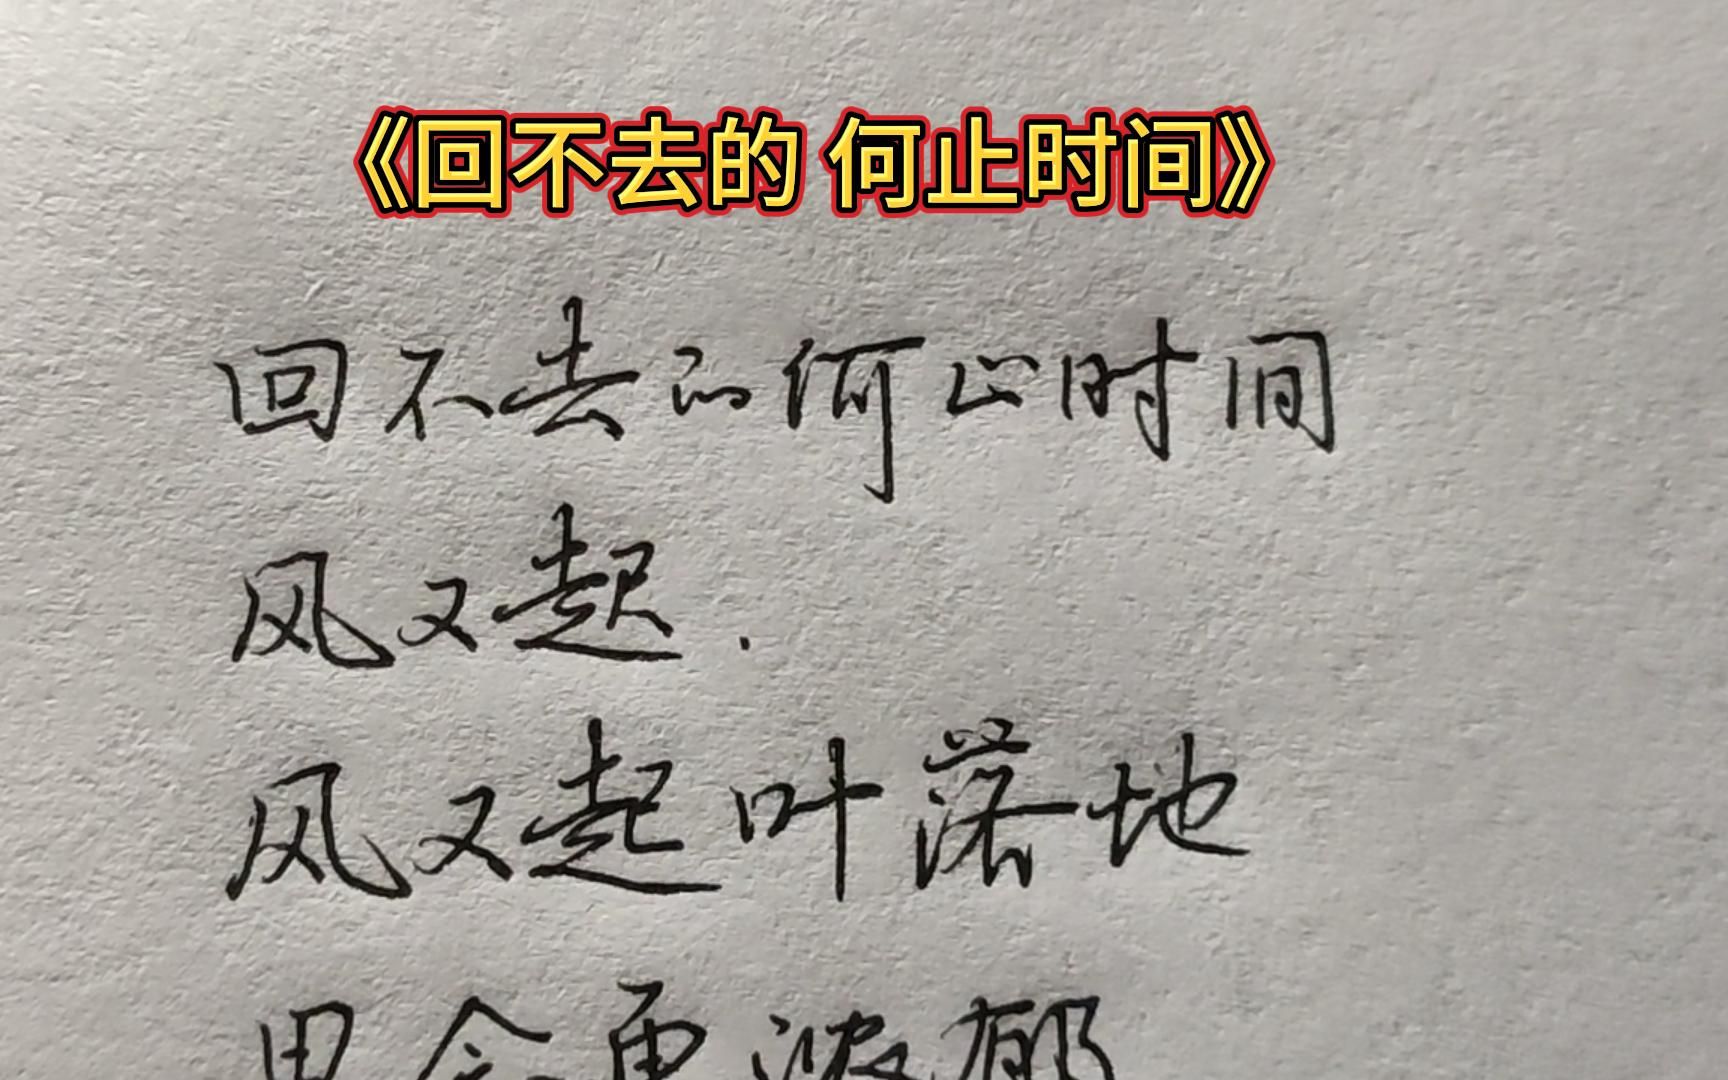 《回不去的 何止时间》
回不去的何止时间
风又起.
风又起叶落地
思念更浓郁